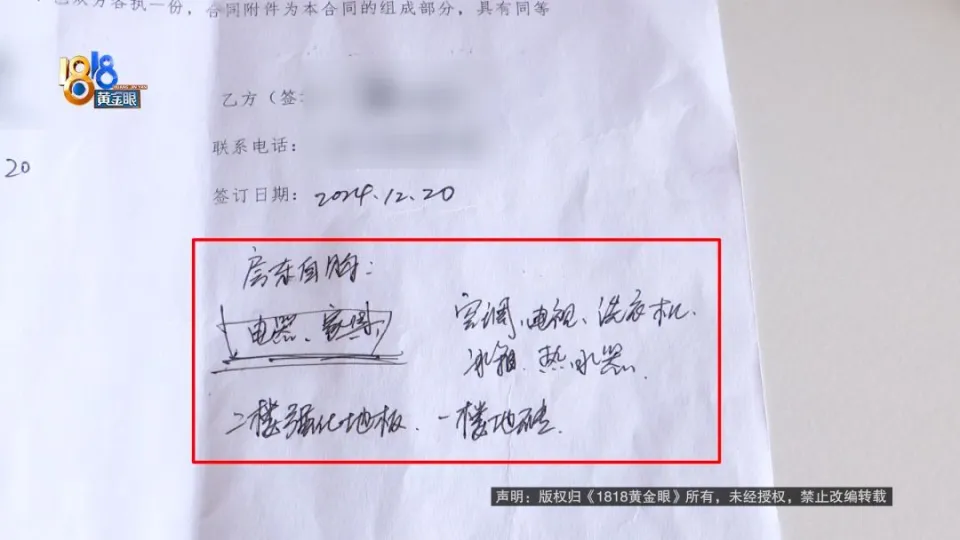 乙双方各执一份，合同附件为本合同的组成部分，具有同等
1818
黄金眼
乙方（签
联系电话：
20
签订日期：2024.12.20
房东自购：
电器、家具、
空调、电视、洗衣机、
冰箱、热水器、
二楼强化地板、一楼地砖、
声明：版权归《1818黄金眼》所有，未经授权，禁止改编转载